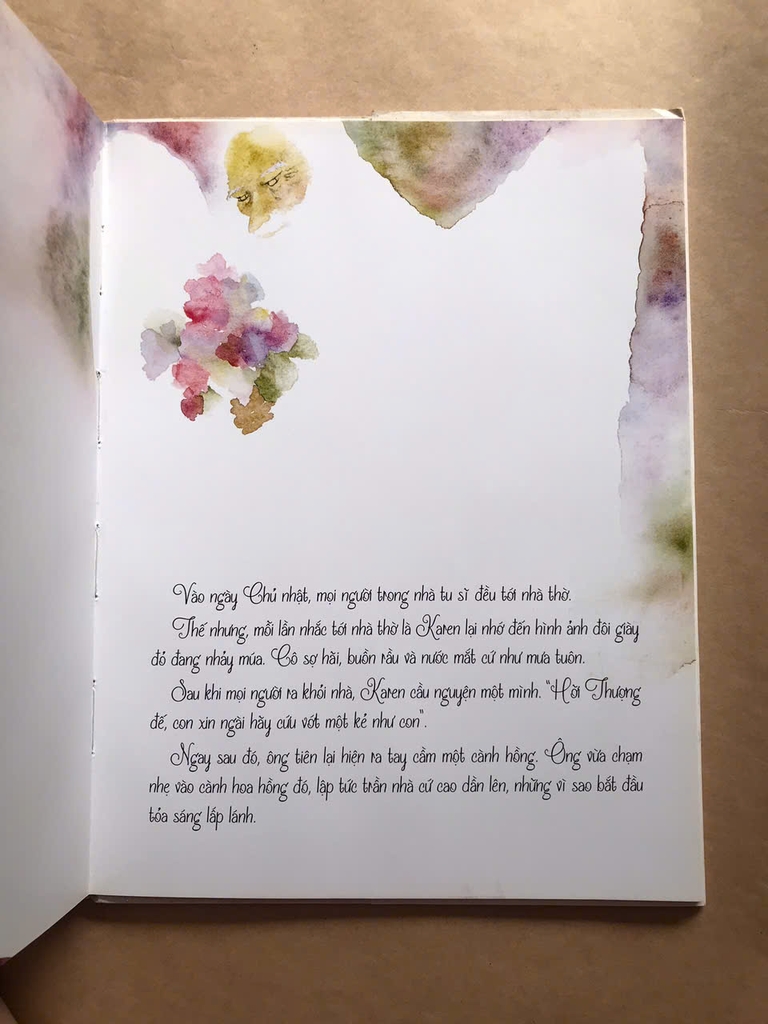 Vào ngày Chủ nhật, mọi người trong nhà tu sĩ đều tới nhà thờ.
Thế nhưng, mỗi lần nhắc tới nhà thờ là Karen lại nhớ đến hình ảnh đôi giày
đỏ đang nhảy múa. Cô sợ hãi, buồn rầu và nước mắt cứ như mưa tuôn.
Sau khi mọi người ra khỏi nhà, Karen cầu nguyện một mình. "Hỡi Thượng
đế, con xin ngài hãy cứu vớt một kẻ như con".
Ngay sau đó, ông tiên lại hiện ra tay cầm một cành hồng. Ông vừa chạm
nhẹ vào cành hoa hồng đó, lập tức trần nhà cứ cao dần lên, những vì sao bắt đầu
tỏa sáng lấp lánh.